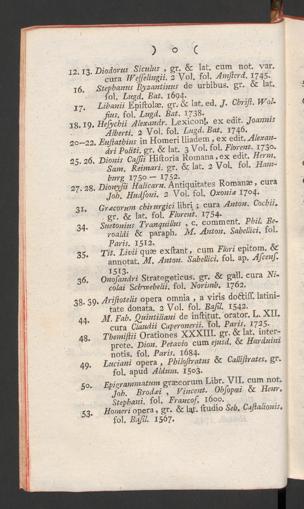 ) o (
12. 13. Diodorus Siculus, gr. & lat. cum not. var.
cura Wesselingii. 2 Vol. fol. Amsterd. 1745.
16. Stephanus Byzantinus de urbibus. gr. & lat.
fol. Lugd. Bat. 1691.
17. Libanii Epistolæ. gr. & lat. ed. J. Christ. Wol-
fius. fol. Lugd. Bat. 1738.
18. 19. Hesychii Alexandr. Lexicon, ex edit. Joannis
Alberti. 2 Vol. fol. Lugd. Bat. 1746.
20–22. Eustathius in Homeri Iliadem, ex edit. Alexan-
dri Politi. gr. & lat. 3 Vol. fol. Florent. 1730.
25. 26. Dionis Cassii Historia Romana, ex edit. Herm.
Sam. Reimari. gr. & lat. 2 Vol. fol. Ham-
burg 1750 — 1752.
27. 28. Dionysii Halicarn. Antiquitates Romanæ, cura
Joh. Hudsoni. 2 Vol. fol. Oxonia 1704.
31. Græcorum chirurgici libri; cura Anton. Cocchii.
gr. & lat. fol. Florent. 1754.
34. Suetonius Tranquillus, c. comment. Phil. Be-
roaldi & paraph. M. Anton. Sabellici. fol.
Paris. 1512.
35. Tit. Livii quæ exstant, cum Flori epitom. &
annotat. M. Anton. Sabellici. fol. ap. Ascens.
1513.
36. Onosandri Strategeticus. gr. & gall. cura Ni-
colai Schwebelii. fol. Norimb. 1762.
38. 39. Aristotelis opera omnia, a viris doctiss. latini-
tate donata. 2 Vol. fol. Basil. 1542.
44. M. Fab. Quintiliani de institut. orator. L. XII.
cura Claudii Caperonerii. fol. Paris. 1725.
48. Themistii Orationes XXXIII. gr. & lat. inter-
prete. Dion. Petavio cum ejusd. & Harduini
notis. fol. Paris. 1684.
49. Luciani opera, Philostratus & Callistrates. gr.
fol. apud Aldum. 1503.
50. Epigrammatum græcorum Libr. VII. cum not.
Joh. Brodæi, Vincent. Obsopæi & Henr.
Stephani. fol. Francof. 1600.
53. Homeri opera, gr. & lat. studio Seb. Castalionis.
fol. Basil. 1567.